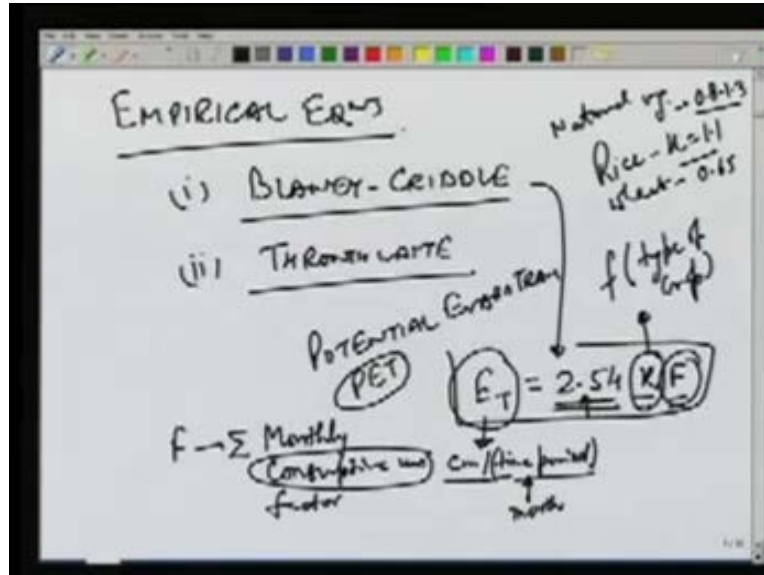 EMPIRICAL EQNS
(i) BLANEY-CRIDDLE
(ii) THRONTHWAITE
Natural vg. → 0.8-1.3
Rice - K=1.1
wheat - 0.65
f (type of crop)
POTENTIAL EVAPOTRAN
PET
E_T = 2.54 K F
F → Σ Monthly
Consumptive use
factor
cm/(time period)
month